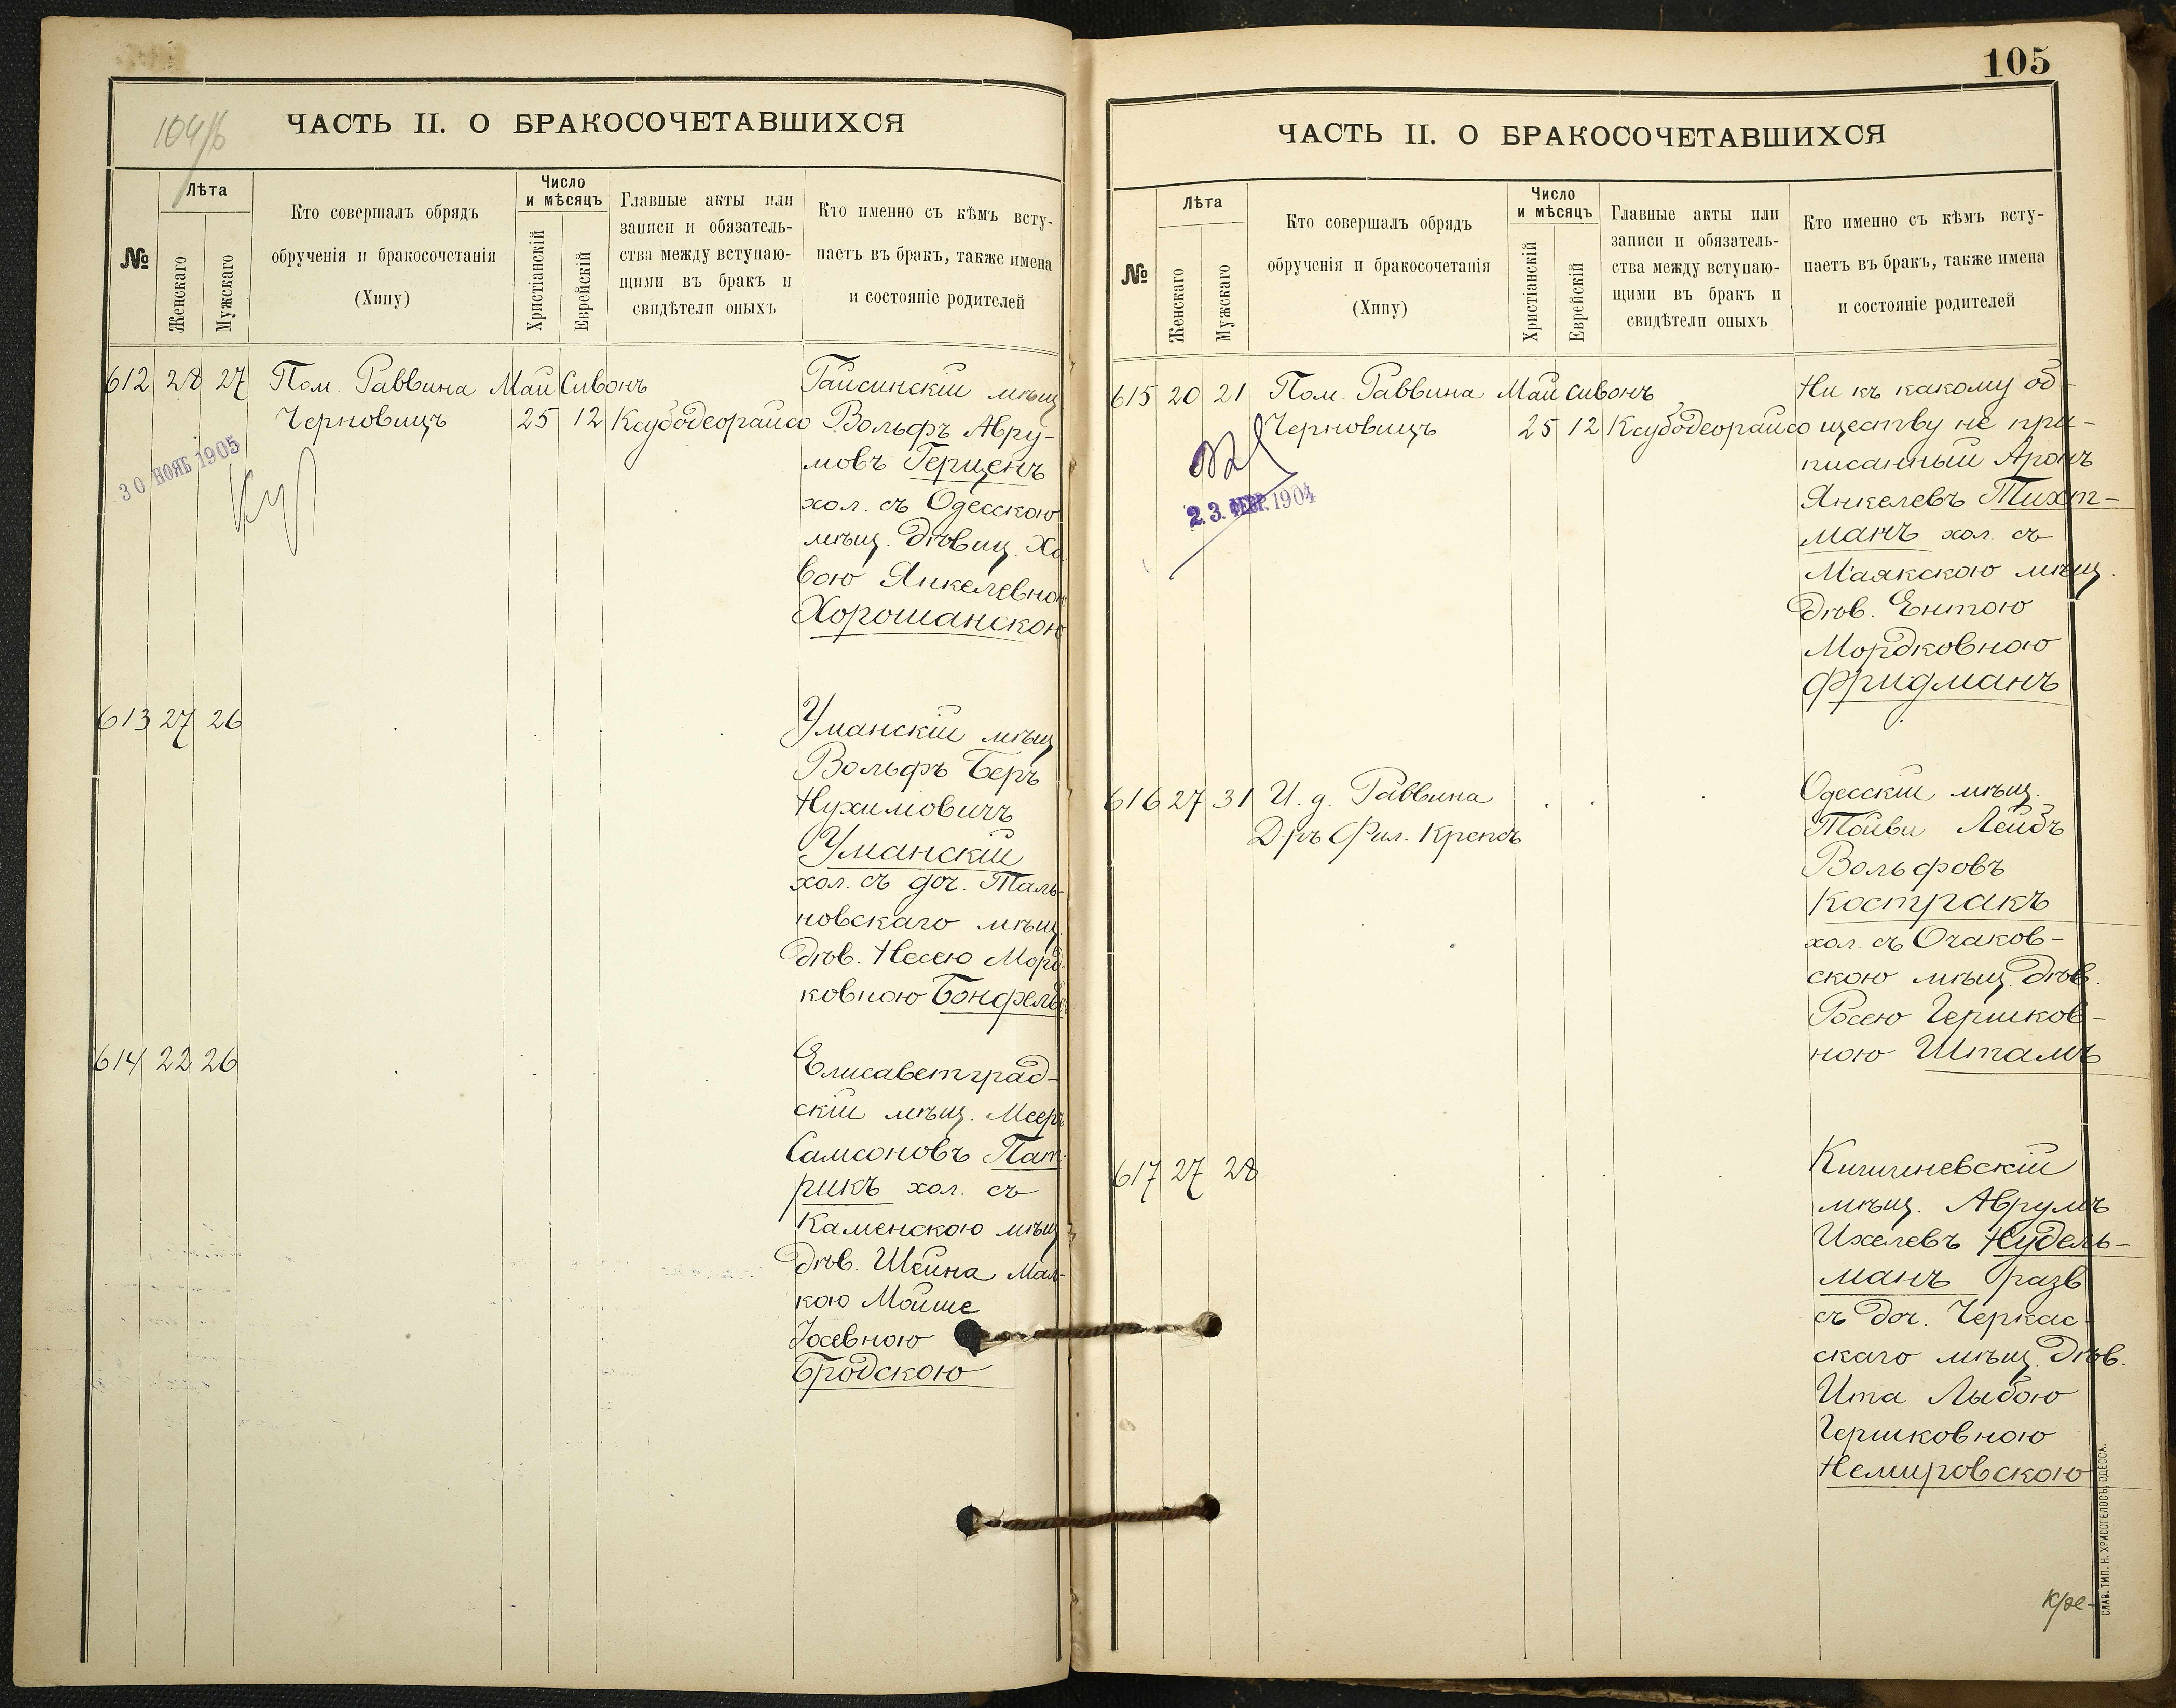 104/б
ЧАСТЬ II. О БРАКОСОЧЕТАВШИХСЯ
№
Лѣта
Женскаго
Мужскаго
Кто совершалъ обрядъ
обрученія и бракосочетанія
(Хипу)
Число
и мѣсяцъ
Христіанскій
Еврейскій
Главные акты или
записи и обязатель-
ства между вступаю-
щими въ бракъ и
свидѣтели оныхъ
Кто именно съ кѣмъ всту-
паетъ въ бракъ, также имена
и состояніе родителей
612 28 27 Пом. Раввина Май Сивонъ
Черновицъ 25 12 Ксубодеорайсо
30 НОЯБ 1905
Гайсинскій мѣщ
Вольфъ Авру-
мовъ Герценъ
хол. съ Одесскою
мѣщ. дѣвиц. Ха
вою Янкелевною
Хорошанскою
613 27 26
Уманскій мѣщ
Вольфъ Беръ
Нухимовичъ
Уманскій
хол. съ доч. Таль-
новскаго мѣщ.
дѣв. Несею Морд-
ковною Бонфельдъ
614 22 26
Елисаветград-
скій мѣщ. Мееръ
Самсоновъ Пат-
рикъ хол. съ
Каменскою мѣщ
дѣв. Шейна Мал-
кою Мойше
Іосевною
Бродскою
105
ЧАСТЬ II. О БРАКОСОЧЕТАВШИХСЯ
№
Лѣта
Женскаго
Мужскаго
Кто совершалъ обрядъ
обрученія и бракосочетанія
(Хипу)
Число
и мѣсяцъ
Христіанскій
Еврейскій
Главные акты или
записи и обязатель-
ства между вступаю-
щими въ бракъ и
свидѣтели оныхъ
Кто именно съ кѣмъ всту-
паетъ въ бракъ, также имена
и состояніе родителей
615 20 21 Пом. Раввина Май Сивонъ
Черновицъ 25 12 Ксубодеорайсо
23. ФЕВР. 1904
Ни къ какому об-
ществу не при-
писанный Аронъ
Янкелевъ Тихт-
манъ хол. съ
Маякскою мѣщ.
дѣв. Ентою
Мордковною
Фридманъ
616 27 31 И. д. Раввина
Д-ръ Фил. Крепсъ
Одесскій мѣщ.
Тойви Лейбъ
Вольфовъ
Костракъ
хол. съ Очаков-
скою мѣщ. дѣв.
Росею Гершков-
ною Штамъ
617 27 28
Кишиневскій
мѣщ. Аврумъ
Ихелевъ Нудель-
манъ разв
съ доч. Черкас-
скаго мѣщ. дѣв.
Ита Лыбою
Гершковною
Немировскою
СЛАВ. ТИП. Н. ХРИСОГЕЛОСЪ, ОДЕССА.